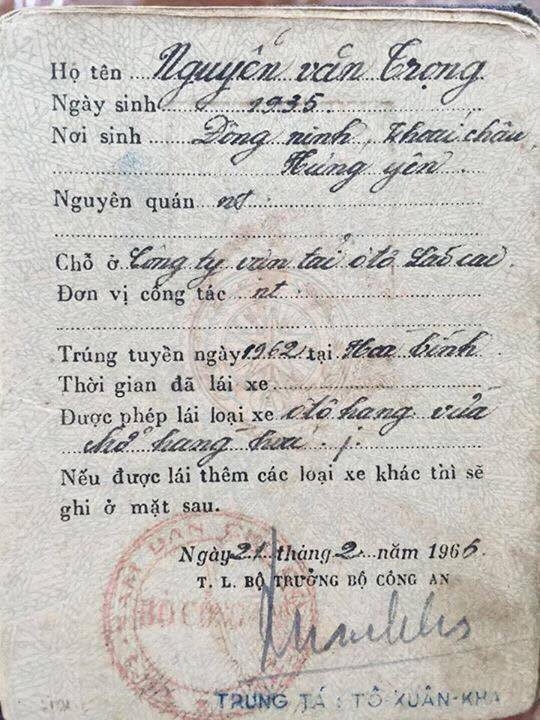 Họ tên ... Nguyễn văn Trọng
Ngày sinh ... 1935
Nơi sinh ... Đông ninh, Khoái châu,
Hưng yên.
Nguyên quán nt.
Chỗ ở Công ty vận tải ôtô Lào cai.
Đơn vị công tác nt.
Trúng tuyển ngày 1962 tại Hoà bình
Thời gian đã lái xe
Được phép lái loại xe ôtô hạng vừa
chở hàng hoá.
Nếu được lái thêm các loại xe khác thì sẽ
ghi ở mặt sau.
Ngày 21 tháng 2 năm 1966
T. L. BỘ TRƯỞNG BỘ CÔNG AN
BỘ CÔNG
TRUNG TÁ : TÔ-XUÂN-KHA